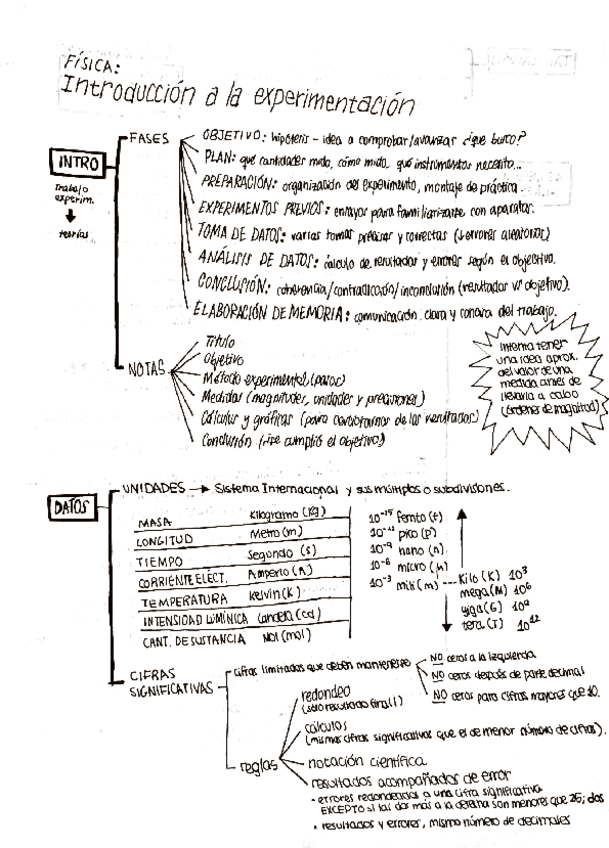 FÍSICA:
Introducción a la experimentación
INTRO
Trabajo
experim.
teorías
FASES
OBJETIVO: hipótesis - idea a comprobar/avanzar ¿que busco?
PLAN: qué cantidades mido, cómo mido, qué instrumentos necesito...
PREPARACIÓN: organización del experimento, montaje de práctica.
EXPERIMENTOS PREVIOS: ensayos para familiarizarte con aparatos.
TOMA DE DATOS: varias tomas precisas y correctas (↓errores aleatorios)
ANÁLISIS DE DATOS: cálculo de resultados y errores según el objetivo.
CONCLUSIÓN: coherencia/contradicción/inconclusión (resultados vs objetivo).
ELABORACIÓN DE MEMORIA: comunicación clara y concisa del trabajo.
NOTAS
Título
Objetivo
Método experimental (pasos)
Medidas (magnitudes, unidades y precisiones)
Cálculos y gráficas (para cerciorarnos de los resultados)
Conclusión (si se cumplió el objetivo)
Intenta tener
una idea aprox.
del valor de una
medida antes de
llevarla a cabo
(órdenes de magnitud)
DATOS
UNIDADES → Sistema Internacional y sus múltiplos o subdivisiones.
MASA Kilogramo (Kg)
LONGITUD Metro (m)
TIEMPO Segundo (s)
CORRIENTE ELECT. Amperio (A)
TEMPERATURA kelvin (K)
INTENSIDAD LUMÍNICA Candela (cd)
CANT. DE SUSTANCIA Mol (mol)
10⁻¹⁵ femto (f)
10⁻¹² pico (p)
10⁻⁹ nano (n).
10⁻⁶ micro (μ)
10⁻³ mili (m) --- Kilo (K) 10³
mega (M) 10⁶
giga (G) 10⁹
tera (T) 10¹²
CIFRAS
SIGNIFICATIVAS
Cifras limitadas que deben mantenerse
NO ceros a la izquierda
NO ceros después de parte decimal
NO ceros para cifras mayores que 10.
reglas
redondeo
(sólo resultado final!)
cálculos
(mismas cifras significativas que el de menor número de cifras).
notación científica
resultados acompañados de error
• errores redondeados a una cifra significativa
EXCEPTO si las dos más a la derecha son menores que 25; dos
• resultados y errores, mismo número de decimales